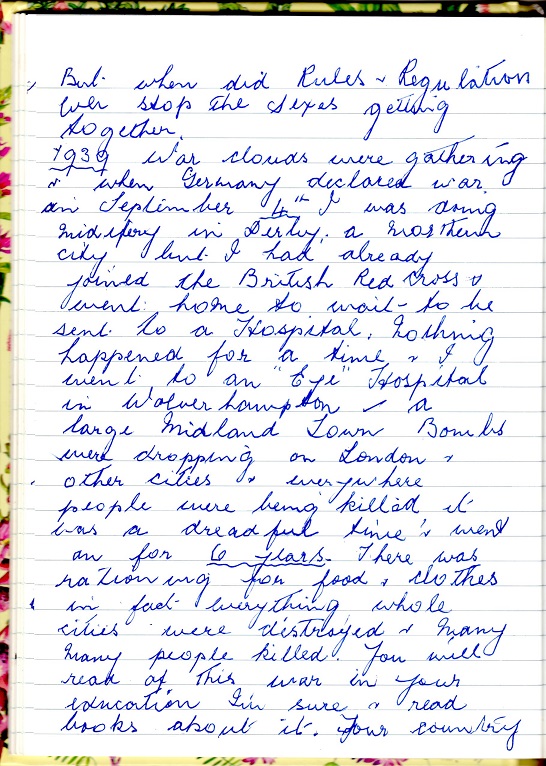 But when did Rules & Regulation
ever stop the sexes getting
together.
1939 War clouds were gathering
& when Germany declared war
in September 4th I was doing
Midifery in Derby, a Northern
city but I had already
joined the British Red Cross &
went home to wait to be
sent to a Hospital. Nothing
happened for a time & I
went to an "Eye" Hospital
in Wolverhampton - a
large Midland Town Bombs
were dropping on London &
other cities & everywhere
people were being killed it
was a dreadful time & went
on for 6 years. There was
rationing for food & clothes
in fact everything whole
cities were distroyed & many
many people killed. You will
read of this war in your
education I'm sure & read
books about it. Your country